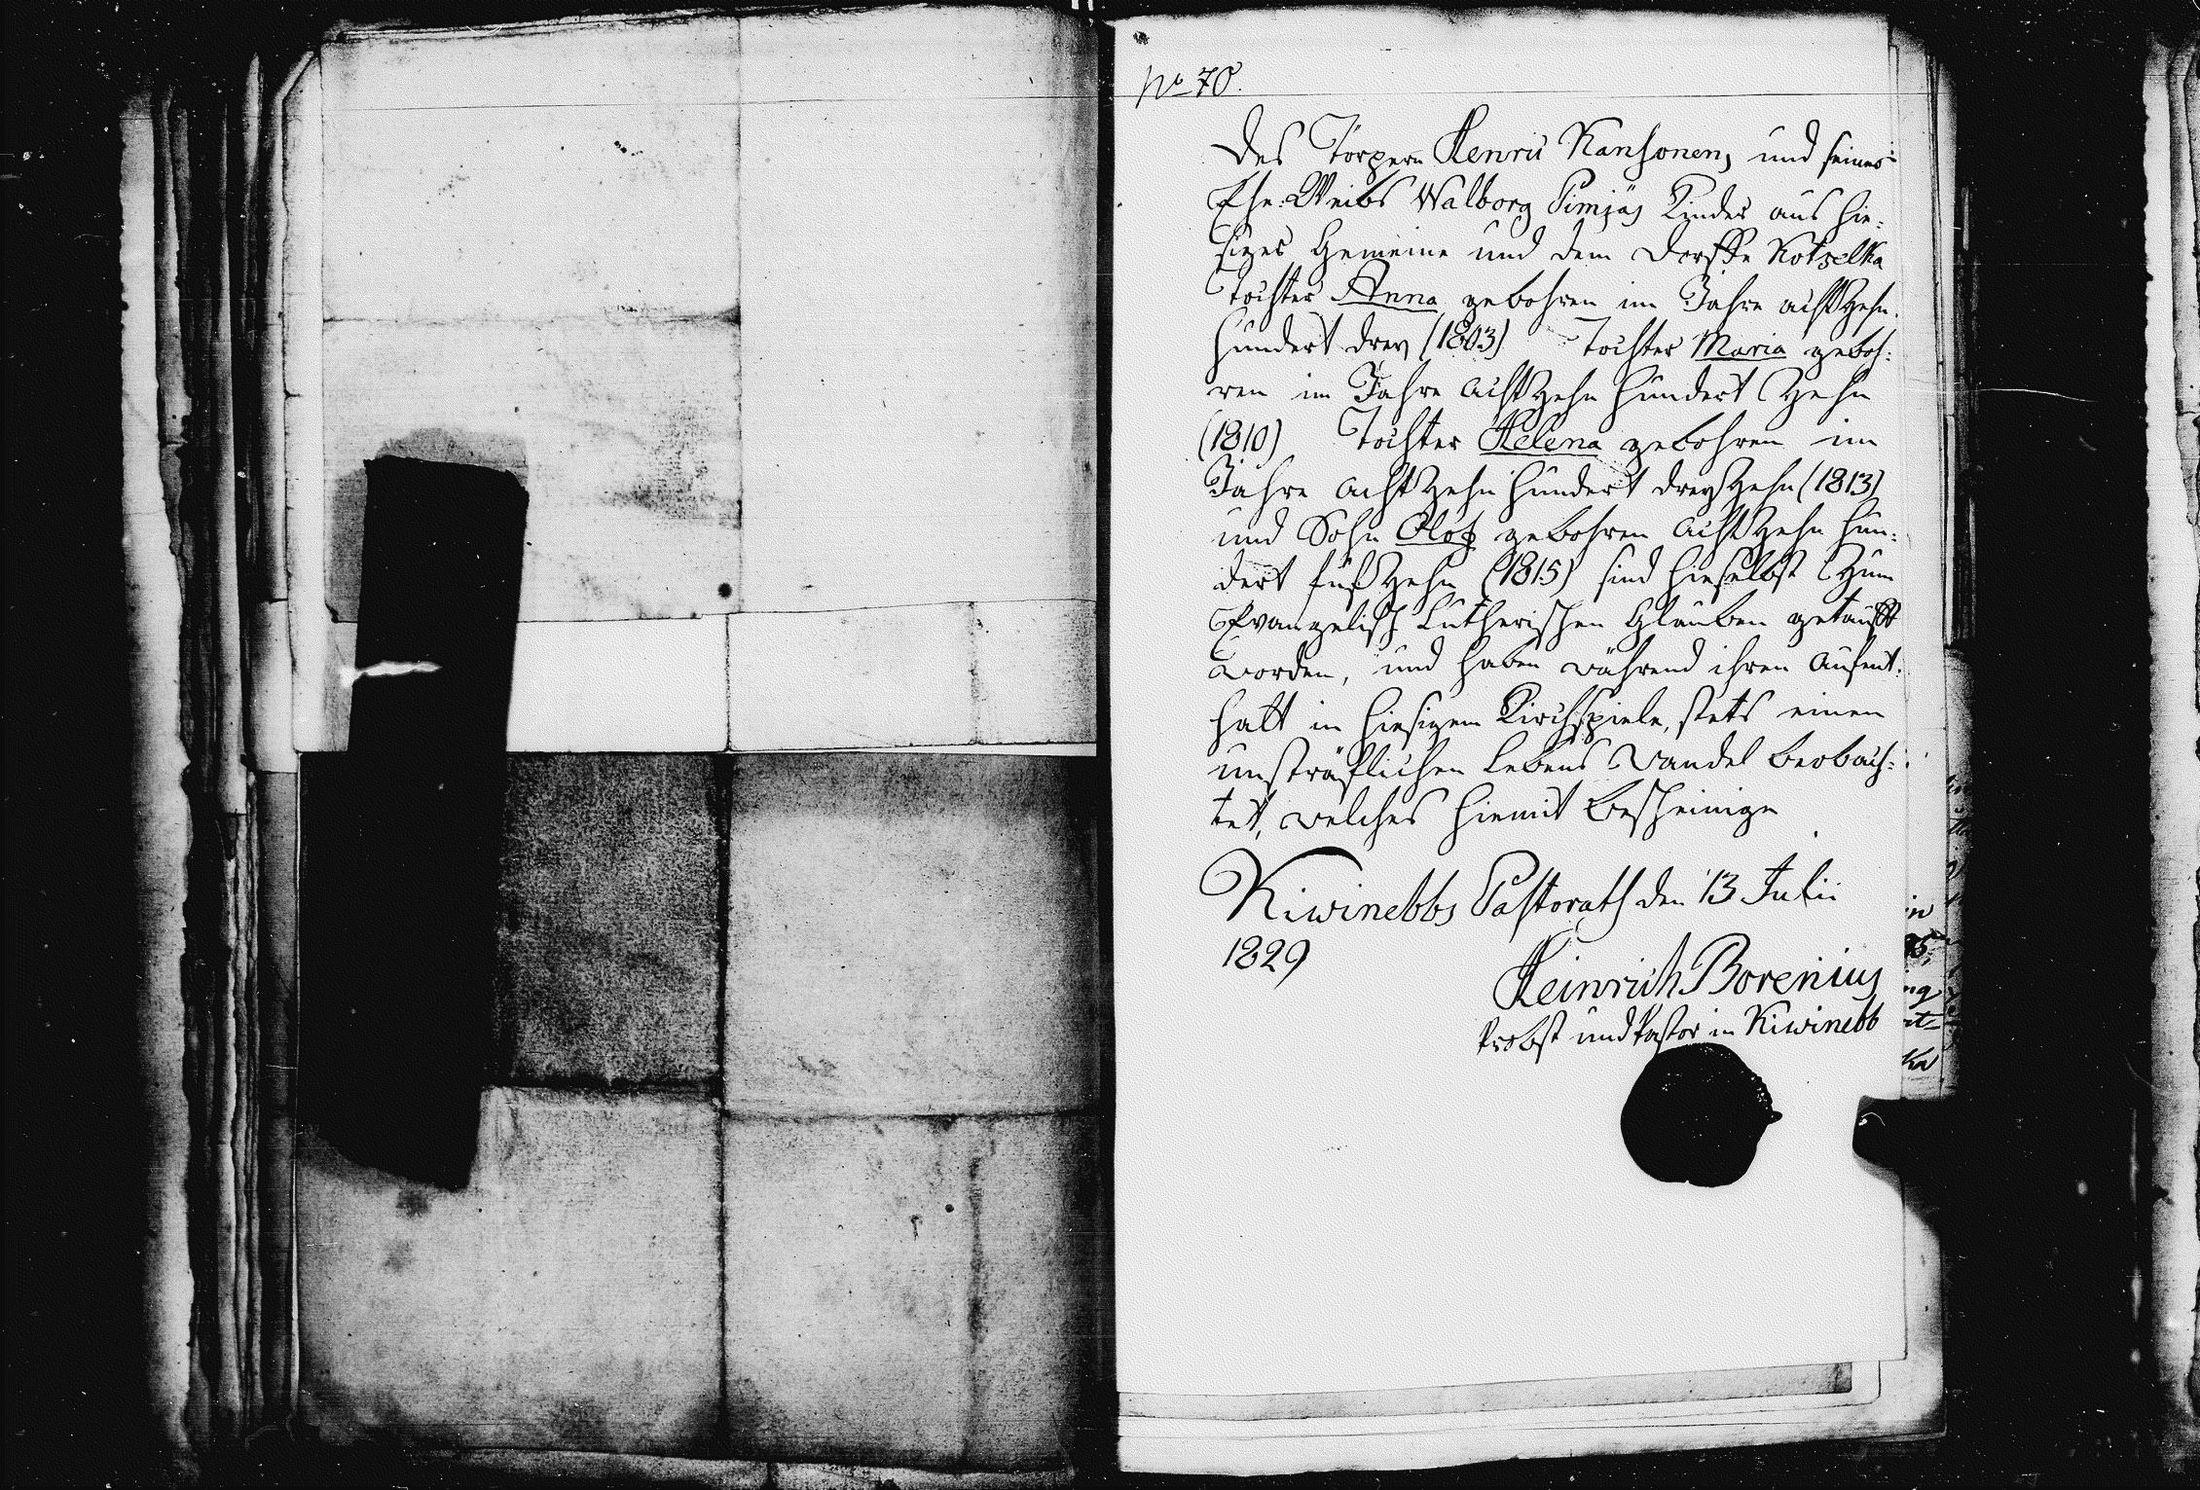 No 70.
Des Törpern Henric Kansonens und seines
Ehe: Weibs Walborg Pimjäs Kinder aus hie-
siger Gemeine und dem Dorffe Kotselka
Tochter Anna gebohren im Jahre achtzehn
hundert drey (1803) Tochter Maria geboh:
ren im Jahre achtzehn hundert zehn
(1810) Tochter Helena gebohren im
Jahre achtzehn hundert dreyzehn (1813)
und Sohn Olof gebohren achtzehn hun:
dert fünfzehn (1815) sind hieselbst zum
Evangelisch Lutherischen Glauben getaufft
worden, und haben während ihren Aufent:
halt in hiesigem Kirchspiele, stets einen
unsträflichen Lebens Wandel beobach:
tet, welches hiemit bescheinige
Kiwinebbs Pastorath den 13 Julii
1829
Heinrich Borenius
Probst und Pastor in Kiwinebb